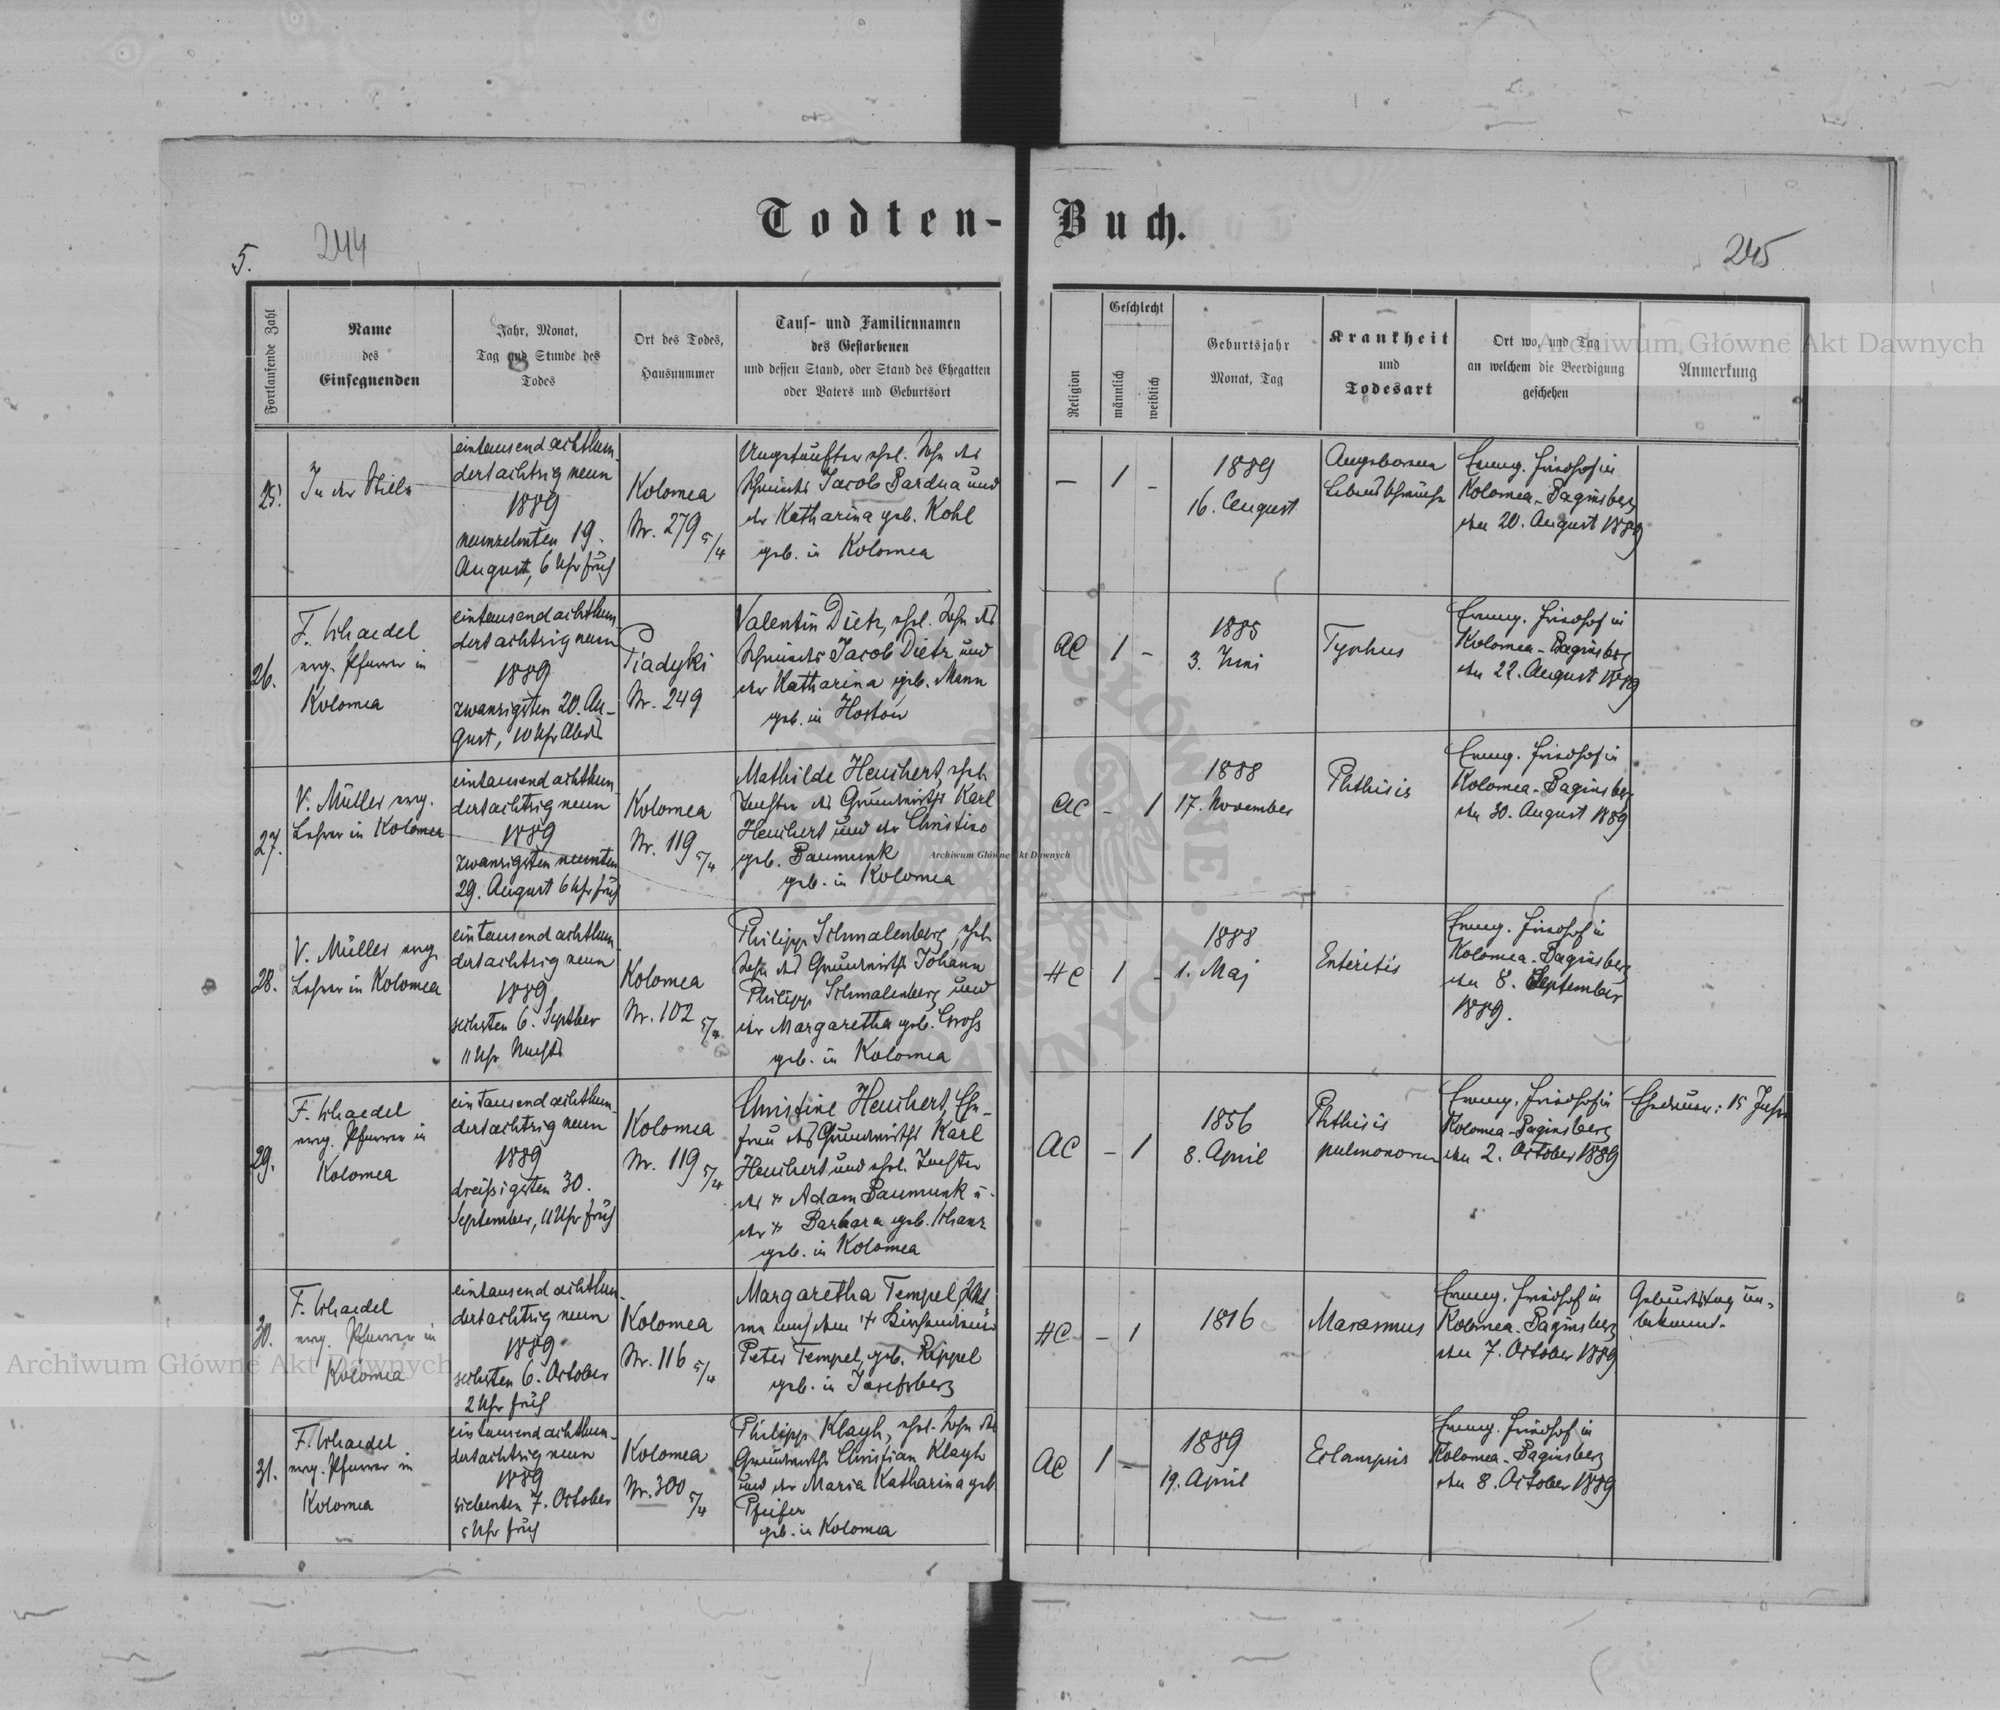 Todten-Buch.
5.
244
245
Fortlaufende Zahl
Name
des
Einsegnenden
Jahr, Monat,
Tag und Stunde des
Todes
Ort des Todes,
Hausnummer
Tauf- und Familiennamen
des Gestorbenen
und dessen Stand, oder Stand des Ehegatten
oder Vaters und Geburtsort
Religion
Geschlecht
männlich
weiblich
Geburtsjahr
Monat, Tag
Krankheit
und
Todesart
Ort wo, und Tag
an welchem die Beerdigung
geschehen
Anmerkung
25.
In der Stille
eintausend achthun-
dertachtzig neun
1889
neunzehnten 19.
August, 6 Uhr früh
Kolomea
Nr. 279 5/4
Ungetaufter ehel. Sohn des
Jacob Bardua und
der Katharina geb. Kohl
geb. in Kolomea
—
1
-
1889
16. August
Angeborene
Lebensschwäche
Evang. Friedhof in
Kolomea-Baginsberg
den 20. August 1889
26.
F. Schaedel
evg. Pfarrer in
Kolomea
eintausend achthun-
dertachtzig neun
1889
zwanzigsten 20. Au-
gust, 10 Uhr Abds
Piadyki
Nr. 249
Valentin Dietz, ehel. Sohn des
Jacob Dietz und
der Katharina geb. Mann
geb. in Hostów
AC
1
-
1885
3. Juni
Typhus
Evang. Friedhof in
Kolomea-Baginsberg
den 22. August 1889
27.
V. Müller evg.
Lehrer in Kolomea
eintausend achthun-
dertachtzig neun
1889
zwanzigsten neunten
29. August 6 Uhr früh
Kolomea
Nr. 119 5/4
Mathilde Heuchert, ehel.
Tochter des Grundwirths Karl
Heuchert und der Christine
geb. Baumunk
geb. in Kolomea
AC
-
1
1888
17. November
Phthisis
Evang. Friedhof in
Kolomea-Baginsberg
den 30. August 1889
28.
V. Müller evg.
Lehrer in Kolomea
eintausend achthun-
dertachtzig neun
1889
sechsten 6. Septber
11 Uhr Nachts
Kolomea
Nr. 102 5/4
Philipp Schmalenberg, ehel.
Sohn des Grundwirths Johann
Philipp Schmalenberg und
der Margaretha geb. Gross
geb. in Kolomea
HC
1
-
1888
1. Maj
Enteritis
Evang. Friedhof in
Kolomea-Baginsberg
den 8. September
1889.
29.
F. Schaedel
evg. Pfarrer in
Kolomea
eintausend achthun-
dertachtzig neun
1889
dreißigsten 30.
September, 11 Uhr früh
Kolomea
Nr. 119 5/4
Christine Heuchert, Ehe-
frau des Grundwirths Karl
Heuchert und ehel. Tochter
des † Adam Baumunk u.
der † Barbara geb. Schanz
geb. in Kolomea
AC
-
1
1856
8. April
Phthisis
pulmonorum
Evang. Friedhof in
Kolomea-Baginsberg
den 2. October 1889
Ehedauer: 15 Jahre
30.
F. Schaedel
evg. Pfarrer in
Kolomea
eintausend achthun-
dertachtzig neun
1889
sechsten 6. October
2 Uhr früh
Kolomea
Nr. 116 5/4
Margaretha Tempel, Wit-
we nach dem †
Peter Tempel, geb. Rippel
geb. in Josefsberg
HC
-
1
1816
Marasmus
Evang. Friedhof in
Kolomea-Baginsberg
den 7. October 1889
Geburtstag un-
bekannt.
31.
F. Schaedel
evg. Pfarrer in
Kolomea
eintausend achthun-
dertachtzig neun
1889
siebenten 7. October
5 Uhr früh
Kolomea
Nr. 300 5/4
Philipp Klayh, ehel. Sohn des
Grundwirths Christian Klayh
und der Maria Katharina geb.
Pfeifer
geb. in Kolomea
AC
1
-
1889
19. April
Eclampsis
Evang. Friedhof in
Kolomea-Baginsberg
den 8. October 1889
Archiwum Główne Akt Dawnych
Archiwum Główne Akt Dawnych
Archiwum Główne Akt Dawnych